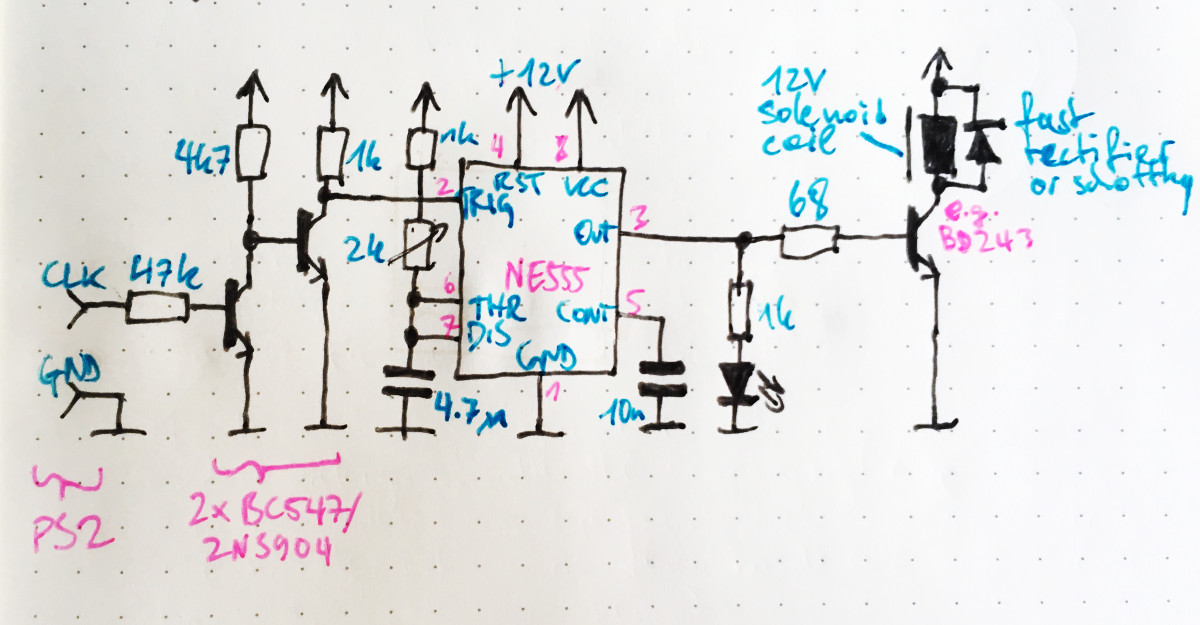 +12V
12V
solenoid
coil
fast
rectifier
or schottky
4k7
1k
1k
4
8
2
RST
VCC
TRIG
68
e.g.
BD243
Out
3
2k
NE555
CLK
47k
6
THR
7
DIS
CONT
5
1k
GND
GND
1
4.7µ
10n
2x BC547/
2N3904
PS2